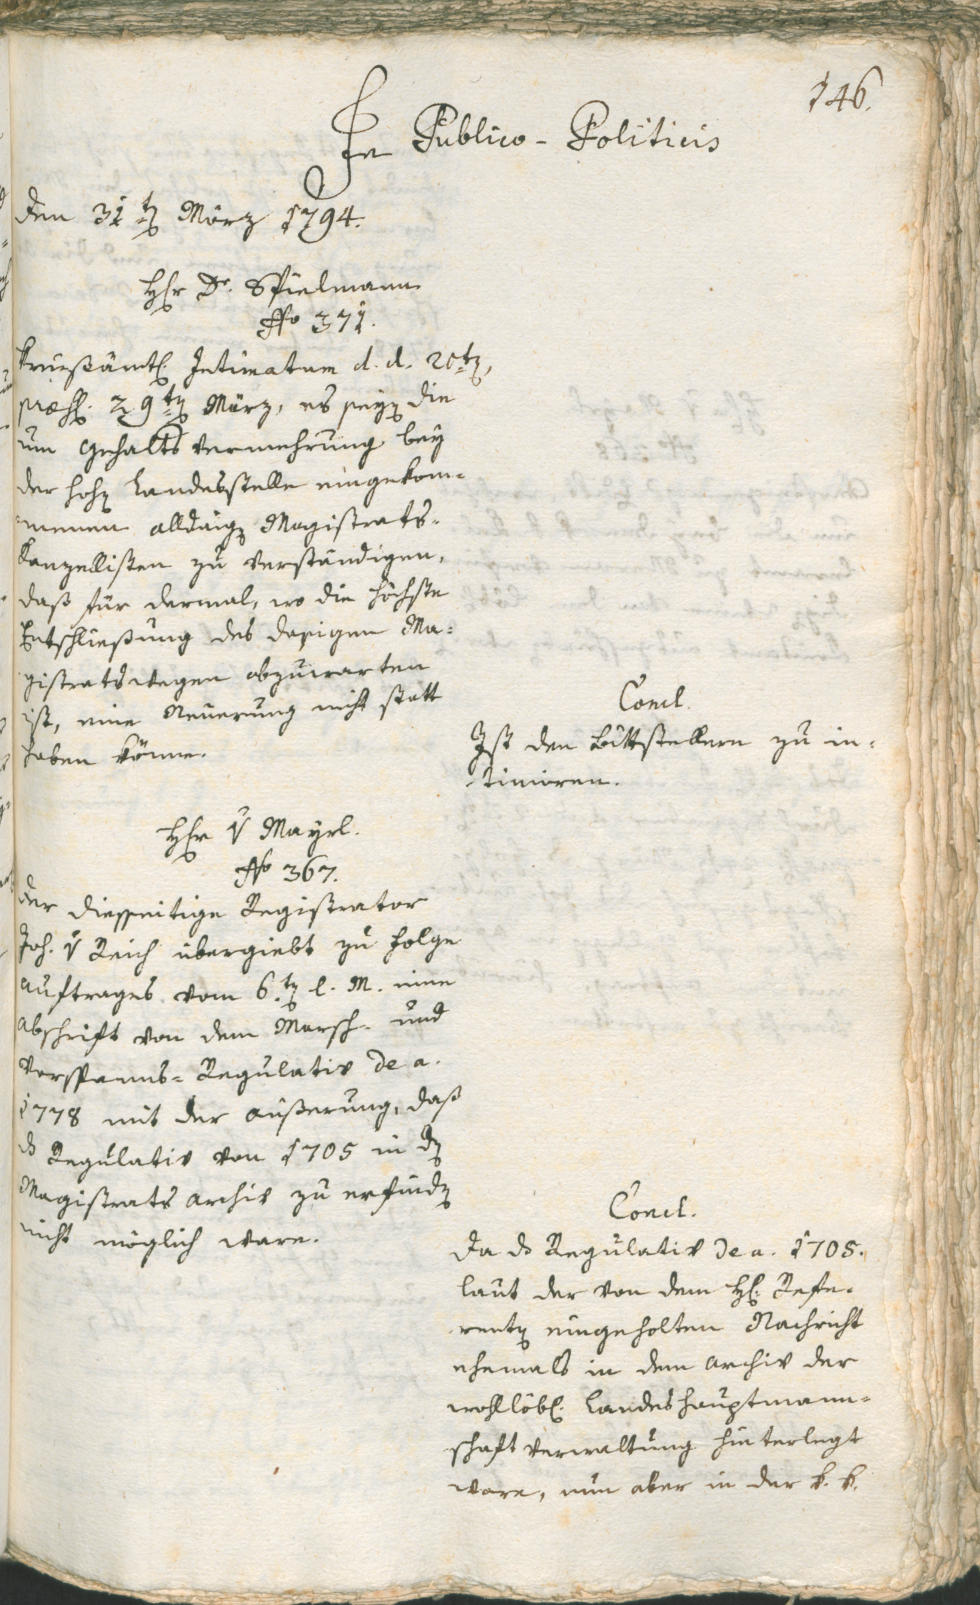 146.
In Publico-Politicis
den 31tn März 1794.
Hr Dr. Spielmann
No 371.
Kreisämtl. Intimatum d. d. 20tn,
præs. 29tn März, es seyn die
um Gehalts Vermehrung bey
der hohn Landesstelle eingekom-
menen alldaign Magistrats-
Kanzellisten zu verständigen,
daß für dermal, wo die höchste
Entschließung des dasigen Ma-
gistratswegen abzuwarten
ist, eine Neuerung nicht statt
haben könne.
Concl.
Ist den Bittstellern zu in-
timiren.
Hr v Mayrl.
No 367.
der diesseitige Registrator
Joh. v Reich übergiebt zu Folge
Auftrages vom 6.tn l. M. eine
Abschrift von dem Marsch- und
Vorspanns-Regulativ de a.
1778 mit der Äußerung, daß
ds Regulativ von 1705 in dn
Magistrats Archiv zu erfindn
nicht möglich ware.
Concl.
Da ds Regulativ de a. 1705.
laut der von dem H. Refe-
rentn eingeholten Nachricht
ehemals in dem Archiv der
wohllöbl. Landeshauptmann-
schaft Verwaltung hinterlegt
ware, nun aber in der k. k.